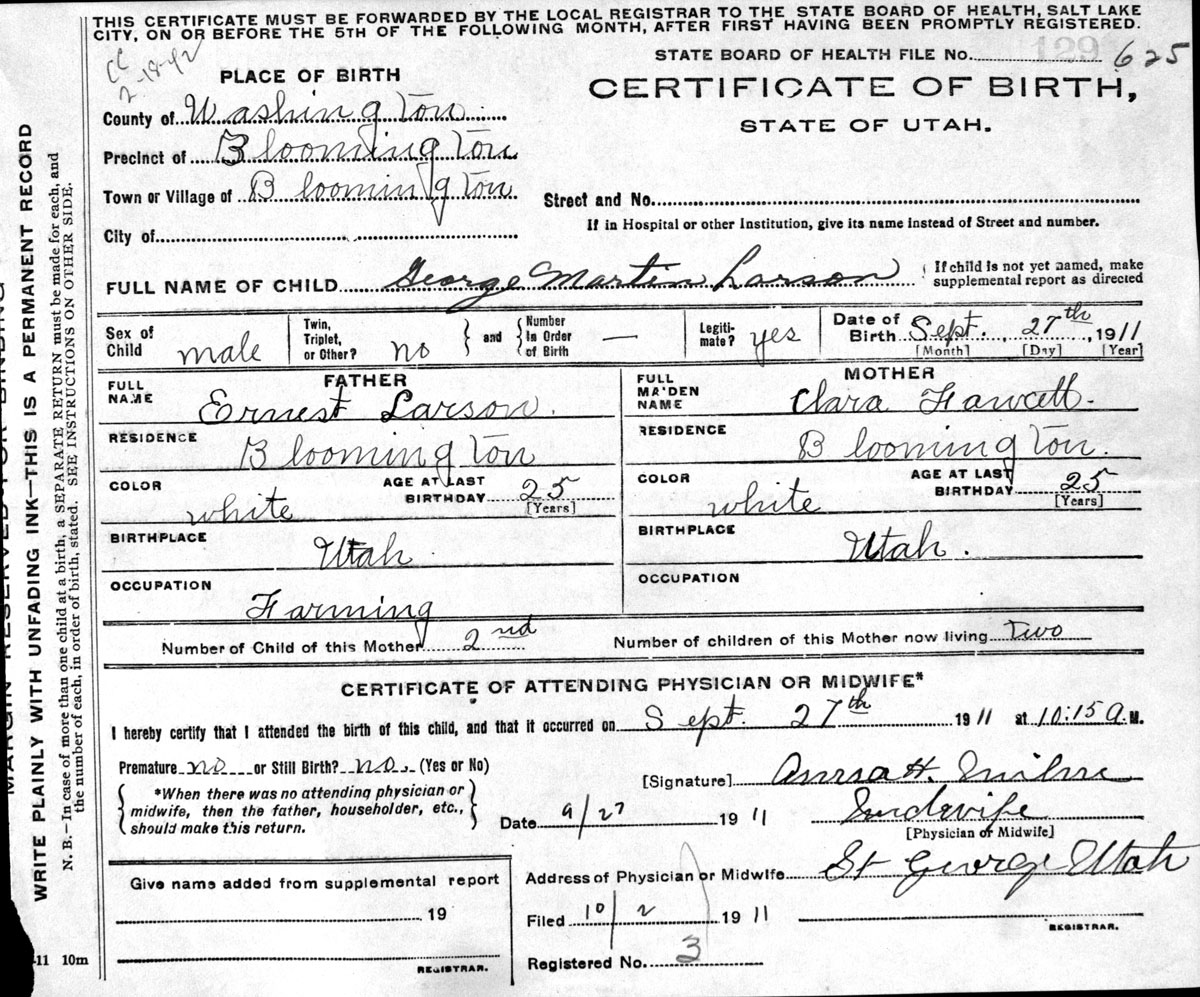 THIS CERTIFICATE MUST BE FORWARDED BY THE LOCAL REGISTRAR TO THE STATE BOARD OF HEALTH, SALT LAKE
CITY, ON OR BEFORE THE 5TH OF THE FOLLOWING MONTH, AFTER FIRST HAVING BEEN PROMPTLY REGISTERED.
STATE BOARD OF HEALTH FILE No. 129 625
CC
2-18-42
PLACE OF BIRTH
CERTIFICATE OF BIRTH,
STATE OF UTAH.
County of Washington
Precinct of Bloomington
Town or Village of Bloomington
Street and No.
If in Hospital or other Institution, give its name instead of Street and number.
City of
FULL NAME OF CHILD George Martin Larson
If child is not yet named, make
supplemental report as directed
Sex of Child male
Twin, Triplet, or Other? no
and Number In Order of Birth —
Legiti- mate? yes
Date of Birth Sept. 27th 1911
[Month] [Day] [Year]
FATHER
FULL NAME Ernest Larson.
RESIDENCE Bloomington
COLOR white AGE AT LAST BIRTHDAY 25 [Years]
BIRTHPLACE Utah.
OCCUPATION Farming
MOTHER
FULL MAIDEN NAME Clara Fawcett.
RESIDENCE Bloomington.
COLOR white AGE AT LAST BIRTHDAY 25 [Years]
BIRTHPLACE Utah.
OCCUPATION
Number of Child of this Mother 2nd Number of children of this Mother now living two
CERTIFICATE OF ATTENDING PHYSICIAN OR MIDWIFE*
I hereby certify that I attended the birth of this child, and that it occurred on Sept. 27th 1911 at 10:15 A.M.
Premature no or Still Birth? no. (Yes or No)
[Signature] Anna H. Milne
*When there was no attending physician or
midwife, then the father, householder, etc.,
should make this return.
Date 9/27 1911 Midwife
[Physician or Midwife]
Give name added from supplemental report
19
REGISTRAR.
Address of Physician or Midwife St George Utah
Filed 10/2 1911
REGISTRAR.
Registered No. 3
-11 10m
MARGIN RESERVED FOR BINDING
WRITE PLAINLY WITH UNFADING INK—THIS IS A PERMANENT RECORD
N. B.—In case of more than one child at a birth, a SEPARATE RETURN must be made for each, and
the number of each, in order of birth, stated. SEE INSTRUCTIONS ON OTHER SIDE.